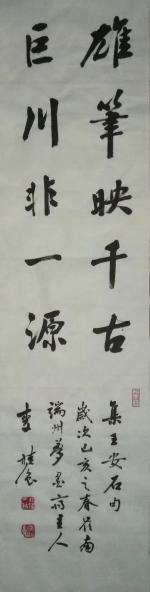 雄筆映千古
巨川非一源
集王安石句
歲次己亥之春於南
端州夢墨齋主人
李